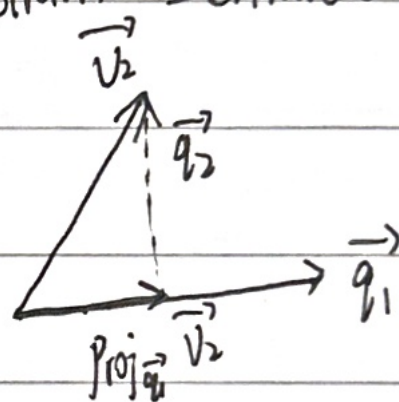 v₂
q₂
q₁
Proj q₁ v₂